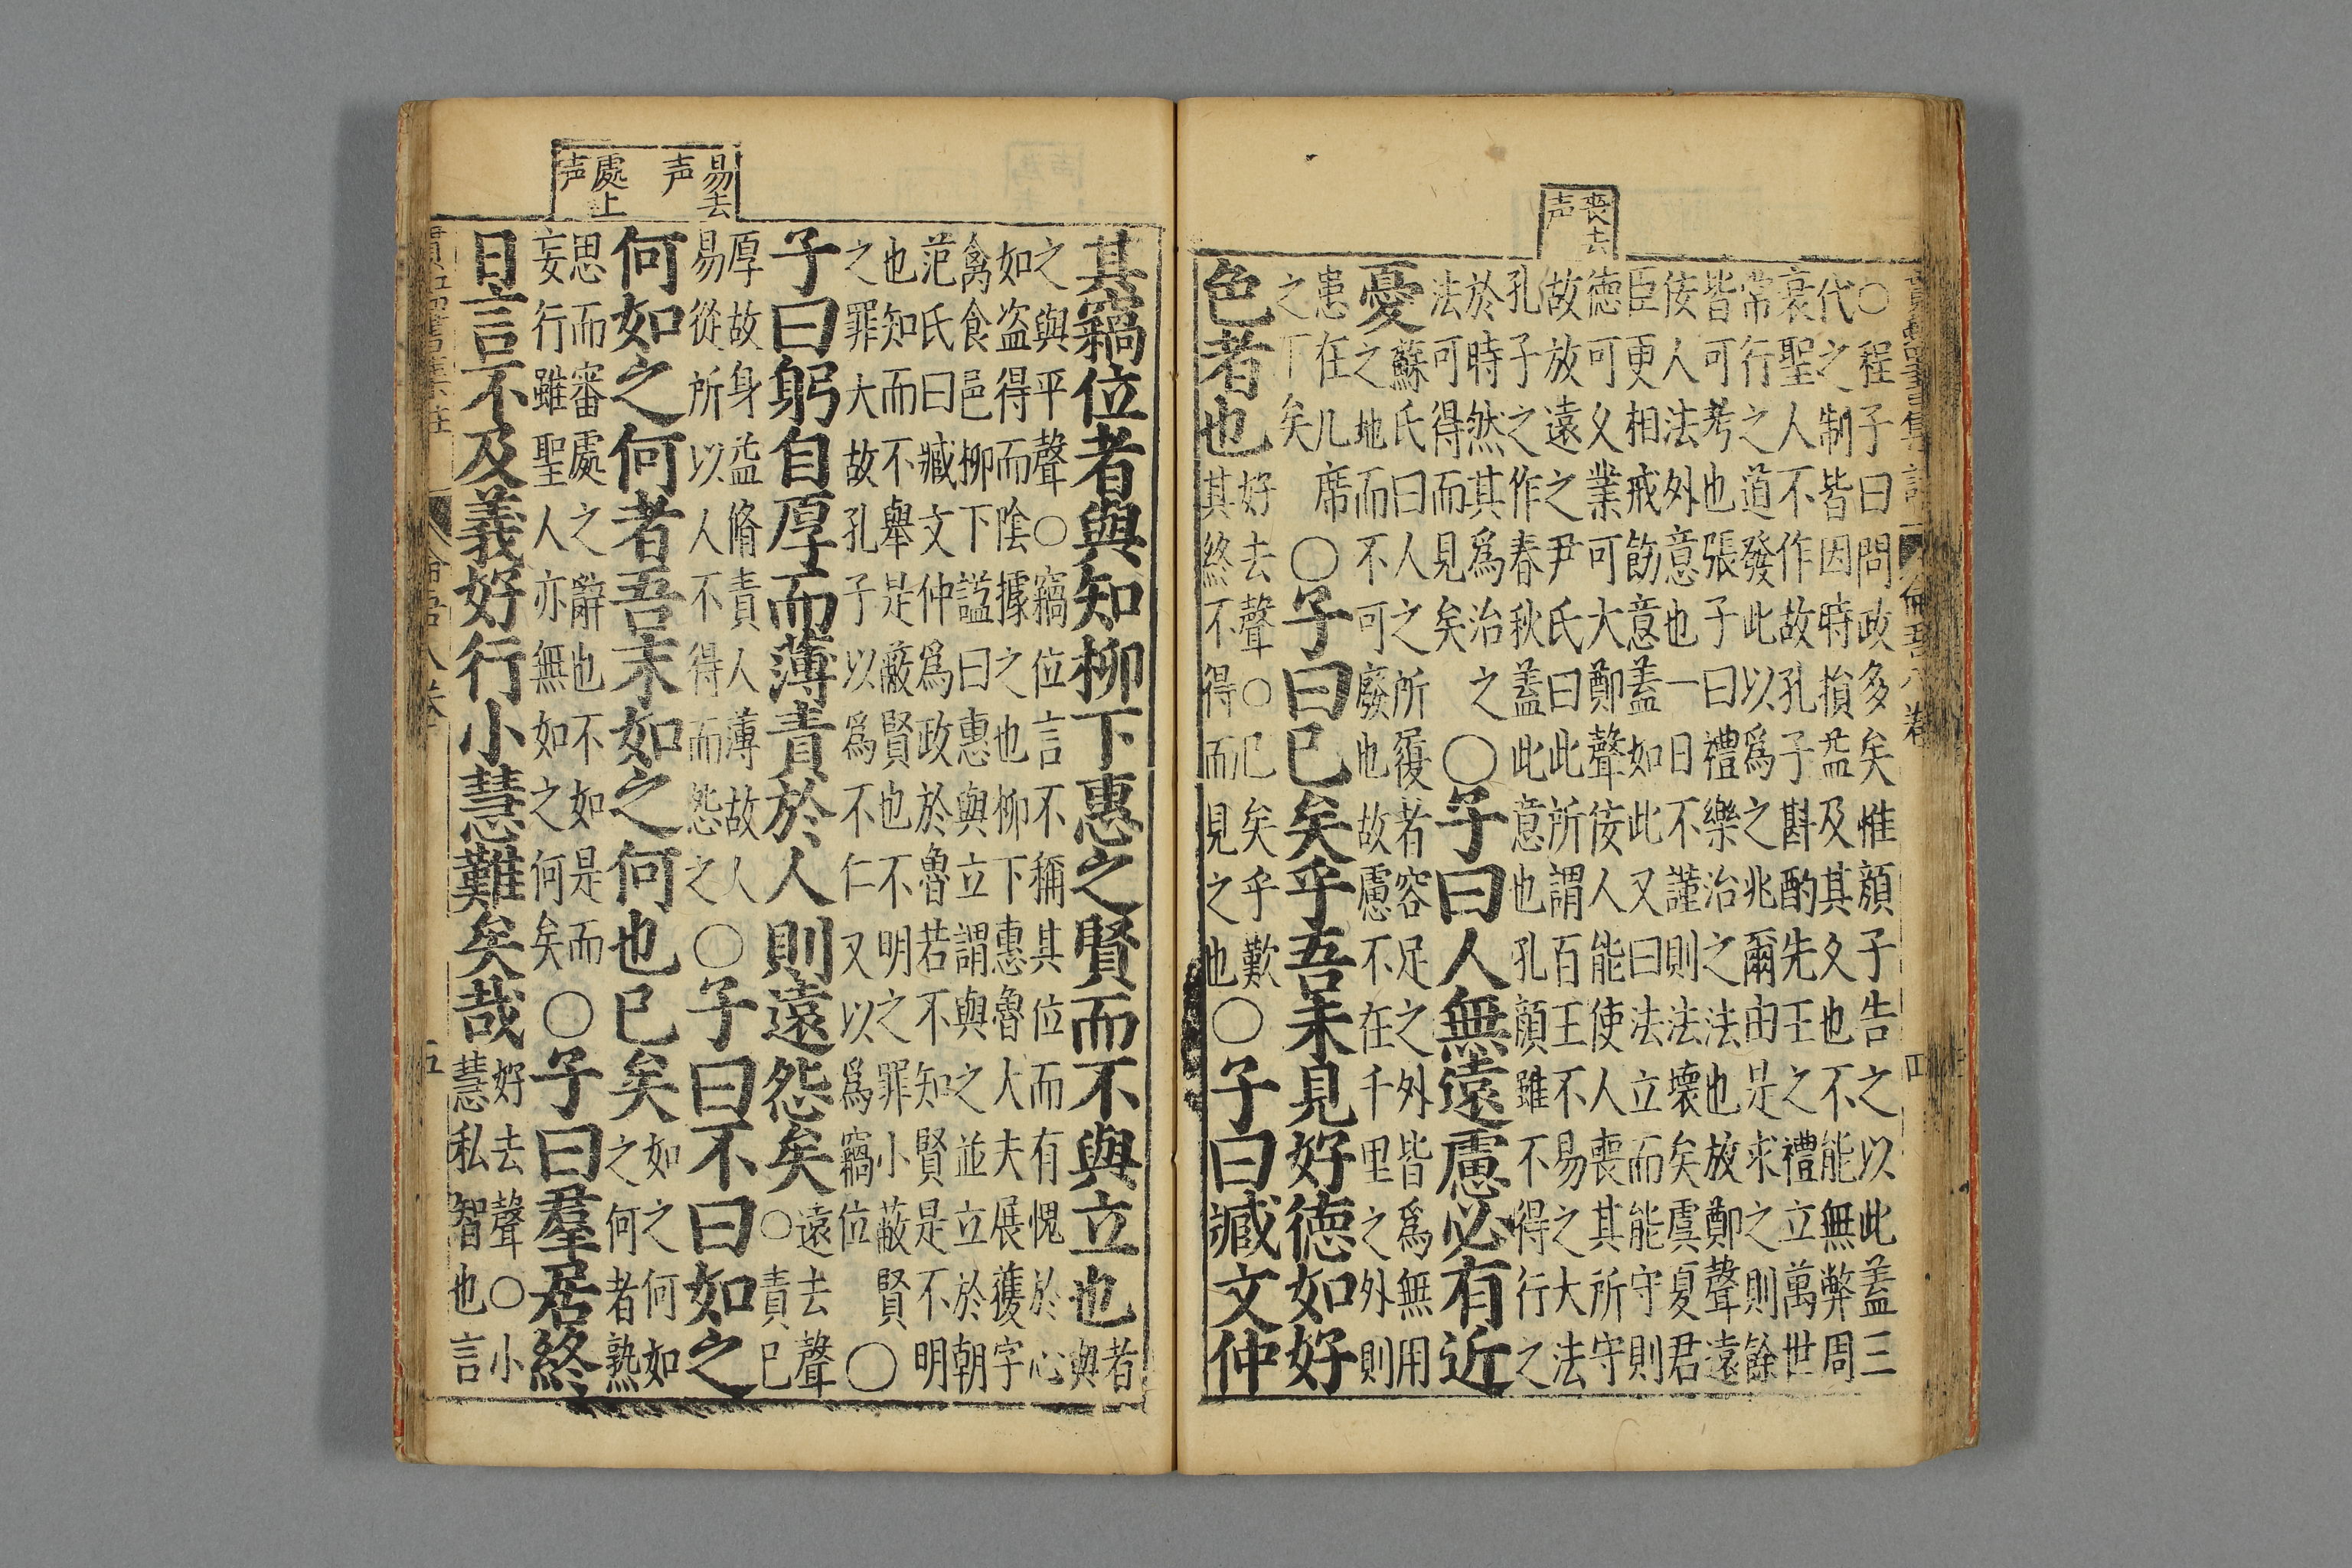 喪去
声
○程子曰問政多矣惟顔子告之以此蓋三
代之制皆因時損益及其久也不能無弊周
衰聖人不作故孔子斟酌先王之禮立萬世
常行之道發此以爲之兆爾由是求之則餘
皆可考也張子曰禮樂治之法也放鄭聲遠
佞人法外意也一日不謹則法壞矣虞夏君
臣更相戒飭意蓋如此又曰法立而能守則
徳可久業可大鄭聲佞人能使人喪其所守
故放遠之尹氏曰此所謂百王不易之大法
孔子之作春秋蓋此意也孔顔雖不得行之
於時然其爲治之
法可得而見矣
○子曰人無遠慮必有近
憂
蘇氏曰人之所履者容足之外皆爲無用
之地而不可廢也故慮不在千里之外則
患在几席
之下矣
○子曰已矣乎吾未見好徳如好
色者也
好去聲○已矣乎歎
其終不得而見之也
○子曰臧文仲
易去
声
處上
声
其竊位者與知柳下惠之賢而不與立也
者
與
之與平聲○竊位言不稱其位而有愧於心
如盗得而陰據之也柳下惠魯大夫展獲字
禽食邑柳下謚曰惠與立謂與之並立於朝
范氏曰臧文仲爲政於魯若不知賢是不明
也知而不舉是蔽賢也不明之罪小蔽賢
之罪大故孔子以爲不仁又以爲竊位
○
子曰躬自厚而薄責於人則遠怨矣
遠去聲
○責已
厚故身益脩責人薄故人
易從所以人不得而怨之
○子曰不曰如之
何如之何者吾末如之何也已矣
如之何如
之何者熟
思而審處之辭也不如是而
妄行雖聖人亦無如之何矣
○子曰羣居終
日言不及義好行小慧難矣哉
好去聲○小
慧私智也言